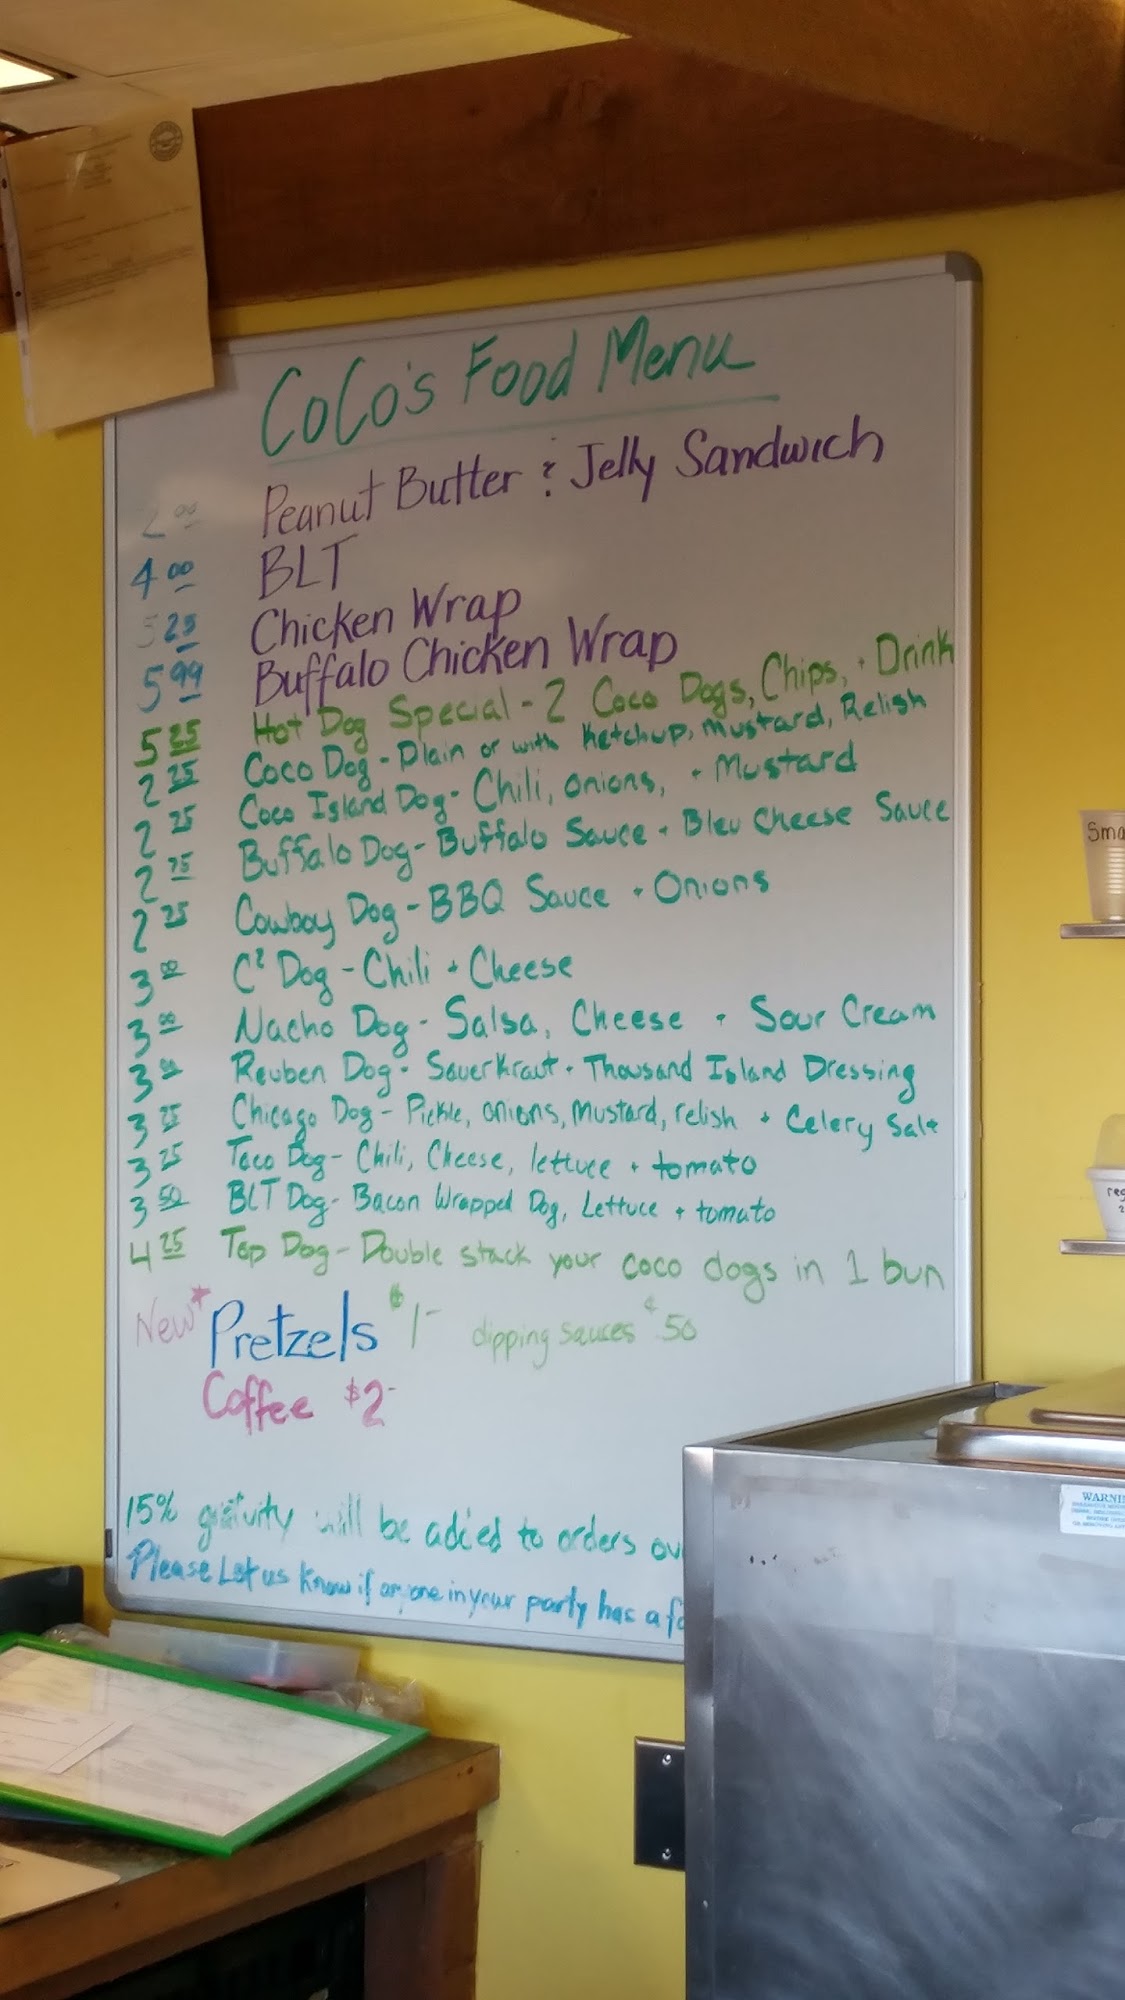 CoCo's Food Menu
2.00 Peanut Butter & Jelly Sandwich
4.00 BLT
5.25 Chicken Wrap
5.99 Buffalo Chicken Wrap
5.25 Hot Dog Special - 2 Coco Dogs, Chips, + Drink
2.25 Coco Dog - Plain or with Ketchup, Mustard, Relish
2.25 Coco Island Dog - Chili, onions, + Mustard
2.75 Buffalo Dog - Buffalo Sauce + Bleu Cheese Sauce
2.75 Cowboy Dog - BBQ Sauce + Onions
3.00 C² Dog - Chili + Cheese
3.00 Nacho Dog - Salsa, Cheese + Sour Cream
3.00 Reuben Dog - Sauerkraut + Thousand Island Dressing
3.25 Chicago Dog - Pickle, onions, Mustard, relish + Celery Salt
3.25 Taco Dog - Chili, Cheese, lettuce + tomato
3.50 BLT Dog - Bacon Wrapped Dog, Lettuce + tomato
4.25 Top Dog - Double stack your coco dogs in 1 bun
New* Pretzels $1- dipping sauces ¢50
Coffee $2-
15% gratuity will be added to orders ov
Please Let us know if anyone in your party has a fo
Sma
reg
WARNI